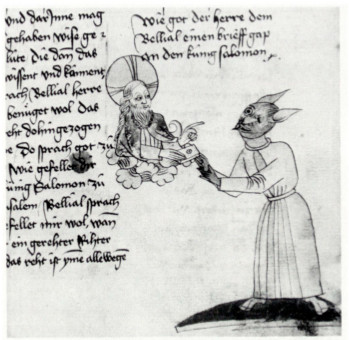 vnd dar Inne mag
gehaben wise ge =
lute die dan das
wissent vnd kament
sprach Bellial herre
benüget wol das
reht do hin gezogen
Do sprach got zu
Wie gefellet dir
küng Salomon zu
salem / Bellial sprach
fellet mir wol wan
ein gerehter Rihter
das reht ist yme allewege
Wie got der herre dem
Bellial einen brieff gap
An den küng salomon